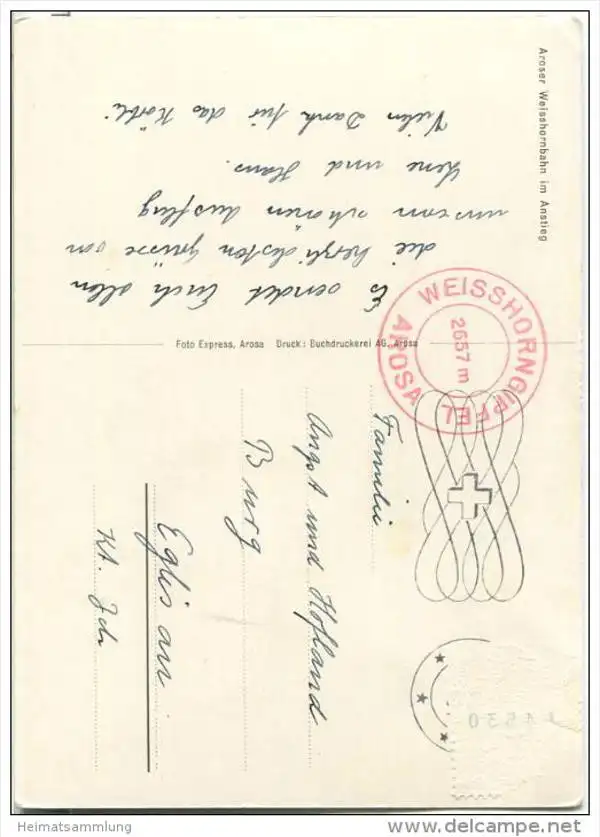 Aroser Weisshornbahn im Anstieg
Es sendet Euch allen
die herzlichsten Grüsse von
unserm schönen Ausflug
Lene und Hans.
Vielen Dank für das Körbli
Foto Express, Arosa Druck: Buchdruckerei AG, Arosa
WEISSHORNGIPFEL
2657 m
AROSA
Familie
Angst und Hofland
Burg
Eglisau
Kt. Zch
Heimatsammlung
delcampe.net